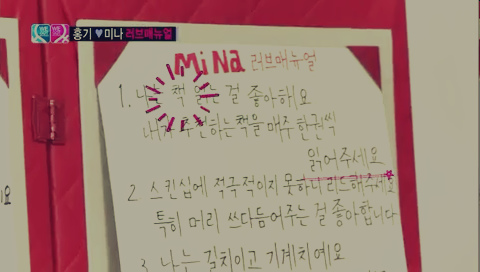 홍기 ♥ 미나 러브매뉴얼
MiNa 러브매뉴얼
1. 나는 책 읽는 걸 좋아해요
내가 추천하는 책을 매주 한권씩
읽어주세요
2. 스킨십에 적극적이지 못하니 리드해주세요
특히 머리 쓰다듬어주는 걸 좋아합니다
3. 나는 길치이고 기계치예요